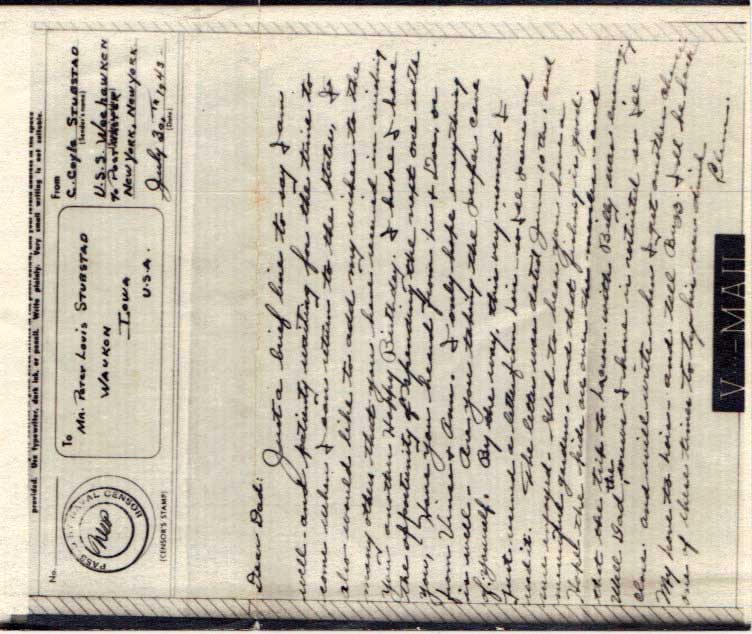 provided. Use typewriter, dark ink, or pencil. Write plainly. Very small writing is not suitable.
No.
PASSED BY NAVAL CENSOR
(CENSOR'S STAMP)
To
MR. PETER LOUIS STUBSTAD
WAUKON
IOWA
U.S.A.
From
C. Coyle STUBSTAD
(Sender's name)
U.S.S. Weehawken
% POSTMASTER
NEW YORK, NEW YORK
July 30, 1943
(Date)
Dear Dad:
Just a brief line to say I am
well - and patiently waiting for the time to
come when I can return to the states, I
also would like to add my wishes to the
many others that you have received in wishing
you another Happy Birthday. I hope I have
the opportunity of spending the next one with
you, Have you heard from Lee & Don, or
from Vince & Ann. I only hope everything
is well - Are you taking the proper care
of yourself. By the way, this very moment I
just received a letter from hois - so I'll pause and
read it. The letter was dated June 20th, and
was enjoyed - Glad to hear you have a
nice garden, and that fishing is good.
Hope the kids are over the measles - and
that the trip to with Billy was enjoyed
Well Dad, the space I have is restricted so I'll
close and will write when I get another chance
My love to hois - and tell B I'll be back
one of these times to his new